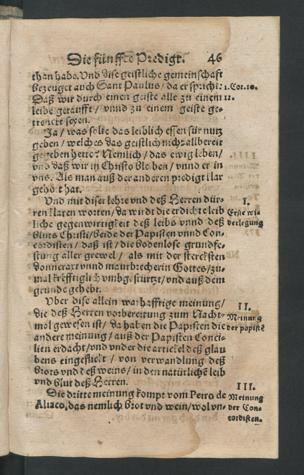 Die fünffte Predigt. 46
than habe. Und dise geistliche gemeinschafft
bezeuget auch Sant Paulus / da er spricht: 1. Cor. 10.
Daß wir durch einen geiste alle zu einem 12.
leibe getaufft / vnnd zu einem geiste ge-
trenckt seyen.
Ja / was solte das leiblich essen für nutz
geben / welches das geistlich nicht allbereit
gegeben hette? Nemlich / das ewig leben /
vnd daß wir in Christo bleiben / vnnd er in
vns. Als man auß der anderen predigt klar
gehört hat.
Und mit diser lehre vnd deß Herren dür-
ren klaren worten / da würdt die erdichte leib
liche gegenwirtigkeit deß leibs vnnd deß
bluts Christi / beide der Papisten vnnd Con-
cordisten / daß ist / die bodenlose grundfe-
stung aller grewel / als mit der sterckesten
donneraxt vnnd maurbrecherin Gottes / zu-
mal krefftiglich vmbgestürtzt / vnd auß dem
grunde gehebt.
I.
Erste
verlegung
Uber dise allein warhafftige meinung /
die deß Herren vorbereitung zum Nacht-
mal gewesen ist / da haben die Papisten die
andere meinung / auß der Papisten Conci-
lien erdacht / vnd vnder die artickel deß glau
bens eingeflickt / von verwandlung deß
brots vnd deß weins / in den natürliche leib
vnd blut deß Herren.
II.
Meinung
der papiste
Die dritte meinung kompt vom Petro de
Aliaco, das nemlich brot vnd wein / wol vn-
III.
Meinung
der Con-
cordisten.